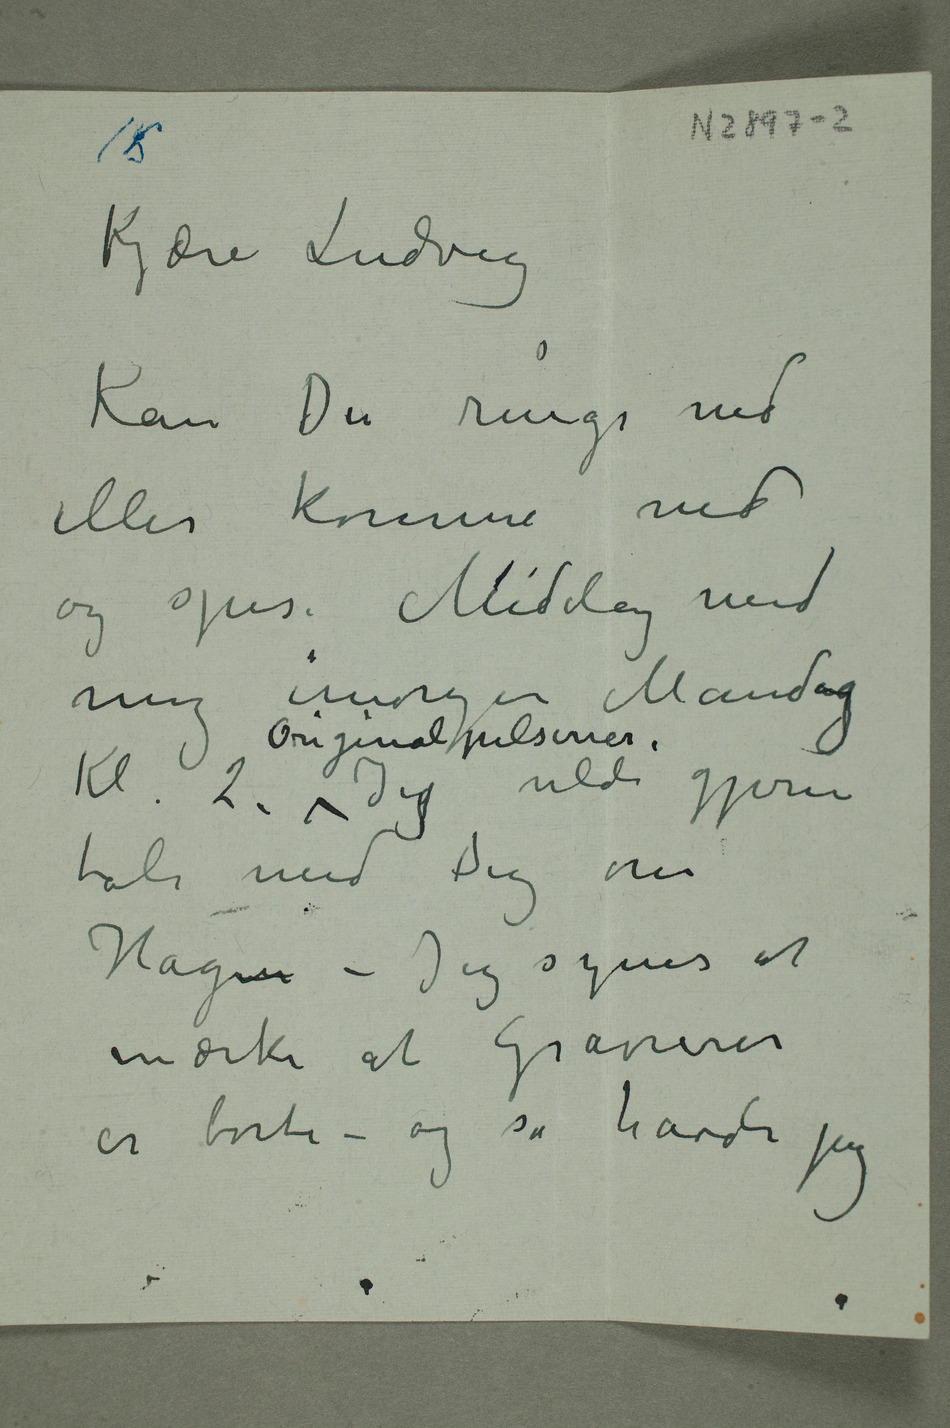 15
N2897-2
Kjære Ludvig
Kan Du ringe ned
eller komme ned
og spise Middag med
mig imorgen Mandag
Originalpilsener.
Kl. 2. Jeg vilde gjerne
tale med Dig om
Hagen – Jeg synes at
mærke at Graverer
er borte – og så havde jeg